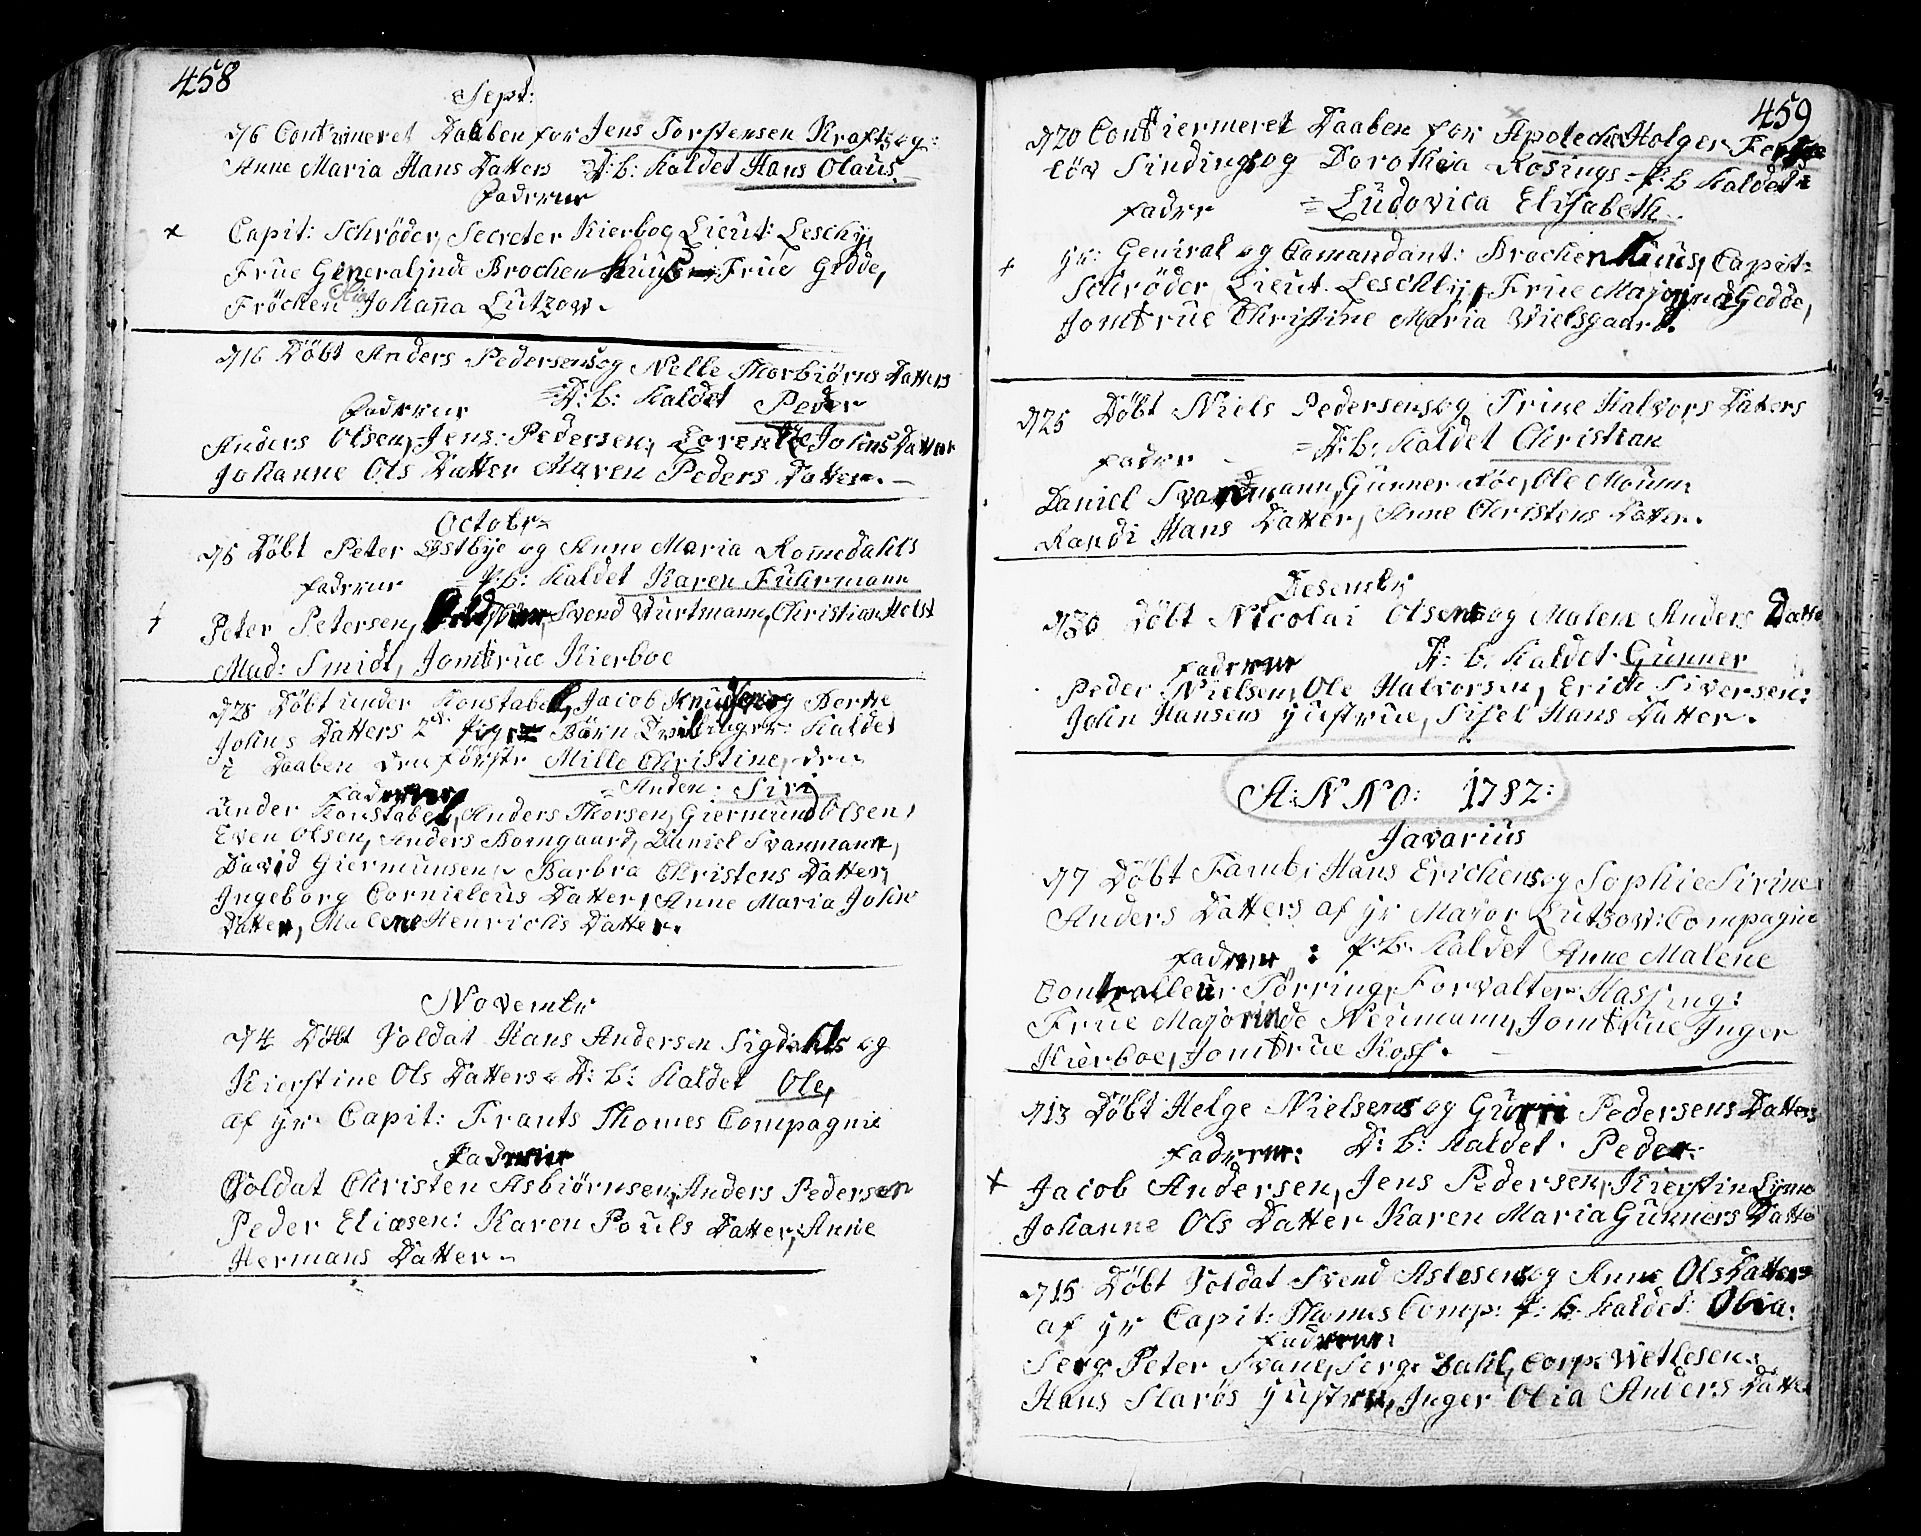 458
Sept:
d 16 Confirmeret Daaben for Jens Torstensen Krafts og
Anne Maria Hans Datters D: b: Kaldet Hans Olaus.
Faderne
x Capit: Schrøder, Secreter Kierboe, Lieut: Leschly,
Frue Generalinde Brochenhuus, Frue Gedde,
Frøchen Johanna Lützow.
d 16 Døbt Anders Pedersens og Nelle Thorbiørns Datters
D: b: Kaldet Peder
Faderne
Anders Olsen, Jens Pedersen, Lorentze Johns Datter
Johanne Ols Datter Maren Peders Datter.
Octobr
d 5 Døbt Peter Østbye og Anne Maria Rommedahls
Faderne P: b: Kaldet Karen Fuhrmann
Peter Petersen, Svend Wurtmann, Christian Holst
Mad: Smidt, Jomfrue Kierboe
d 28 Døbt under Konstabel, Jacob Knudsens og Berthe
Johns Datters 2de Pige Børn Tvillinger: Kaldet
i Daaben den første Mille Christine, den
Anden: Siri
Faderne
under Konstabel, Anders Thorsen, Giermund Olsen,
Even Olsen, Anders Bomgaard, Daniel Svanmann,
David Giermunsen, Barbra Christens Datter,
Ingeborg Cornieleus Datter, Anne Maria John
Datter, Malene Henrichs Datter.
Novembr
d 4 Døbt Soldat Hans Andersen Sigdahls og
Kierstine Ols Datters D: b: Kaldet Ole,
af Hr Capit: Frants Thomes Compagnie
Faderne
Soldat Christen Asbiørnsen, Anders Pedersen
Peder Eliæsen: Karen Pouls Datter, Anne
Hermans Datter
459
d 20 Confiermeret Daaben for Apotech: Holger
Sindings og Dorothea Rosings P: b Kaldet
Fadre Ludovica Elisabeth
Hr: General og Comandant: Brochenhuus, Capit:
Schrøder Lieut. Leschly, Frue Majorinde Gedde,
Jomfrue Christine Maria Wielsgaard.
d 25 Døbt Niels Pedersens og Trine Halvors Datters
D: b: Kaldet Christian
Fadre
Daniel Svandmann, Gunner Røe, Ole Moum
Randi Hans Datter, Anne Christens Datter.
Desembr
d 30 Døbt Nicolai Olsens og Malene Anders Datte
D: b. Kaldet Gunner
Faderne
Peder Nielsen, Ole Halvorsen, Erich Siversen:
John Hansens Hustrue, Sisel Hans Datter.
A:NNO: 1782:
Javarius
d 7 Døbt Tambi Hans Erichens og Sophie Sirine
Anders Datters af Hr Major Lutzow: Compagnie
Faderne : P: b. Kaldet Anne Malene
Controlleur Tørring, Forvalter Hassing:
Frue Majorinde Neumann, Jomfrue Inger
Kierboe, Jomfrue Koss.
d 13 Døbt Helge Nielsens og Gurri Pedersens Datters
Faderne: D: b: Kaldet Peder.
x Jacob Andersen, Jens Pedersen, Kierstin Lynne
Johanne Ols Datter Karen Maria Gunners Datte
d 15 Døbt Soldat Svend Aslesens og Anne Ols Datters
af Hr Capit: Thomes Comp: P: b Kaldet: Olia:
Faderne:
Serg Peter Svane, Serg: Dahl, Corp: Wetlesen.
Hans Slarøs Hustrue, Inger Olia Anders Datte